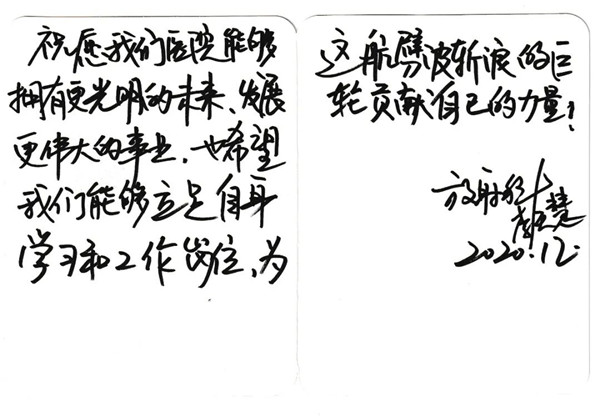 祝愿我们医院能够
拥有更光明的未来、发展
更伟大的事业，也希望
我们能够立足自身
学习和工作岗位，为
这航劈波斩浪的巨
轮贡献自己的力量！
放射科
2020.12.